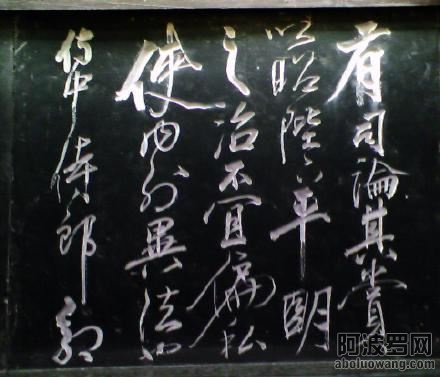 有司論其賞
以昭陛下平明
之治不宜偏私
使内外異法也
侍中侍郎郭
阿波罗网
aboluowang.com